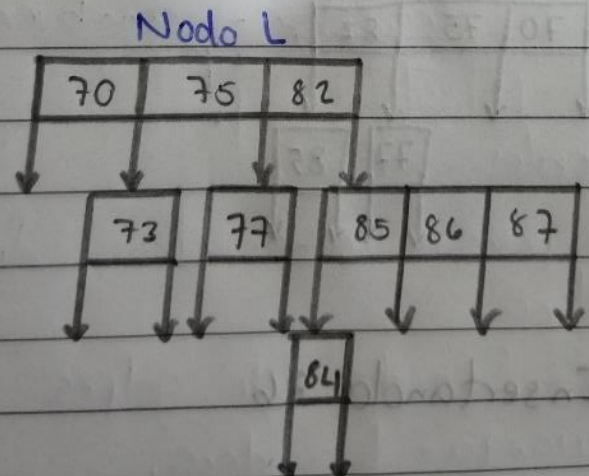 Nodo L
70 75 82
73 77 85 86 87
84